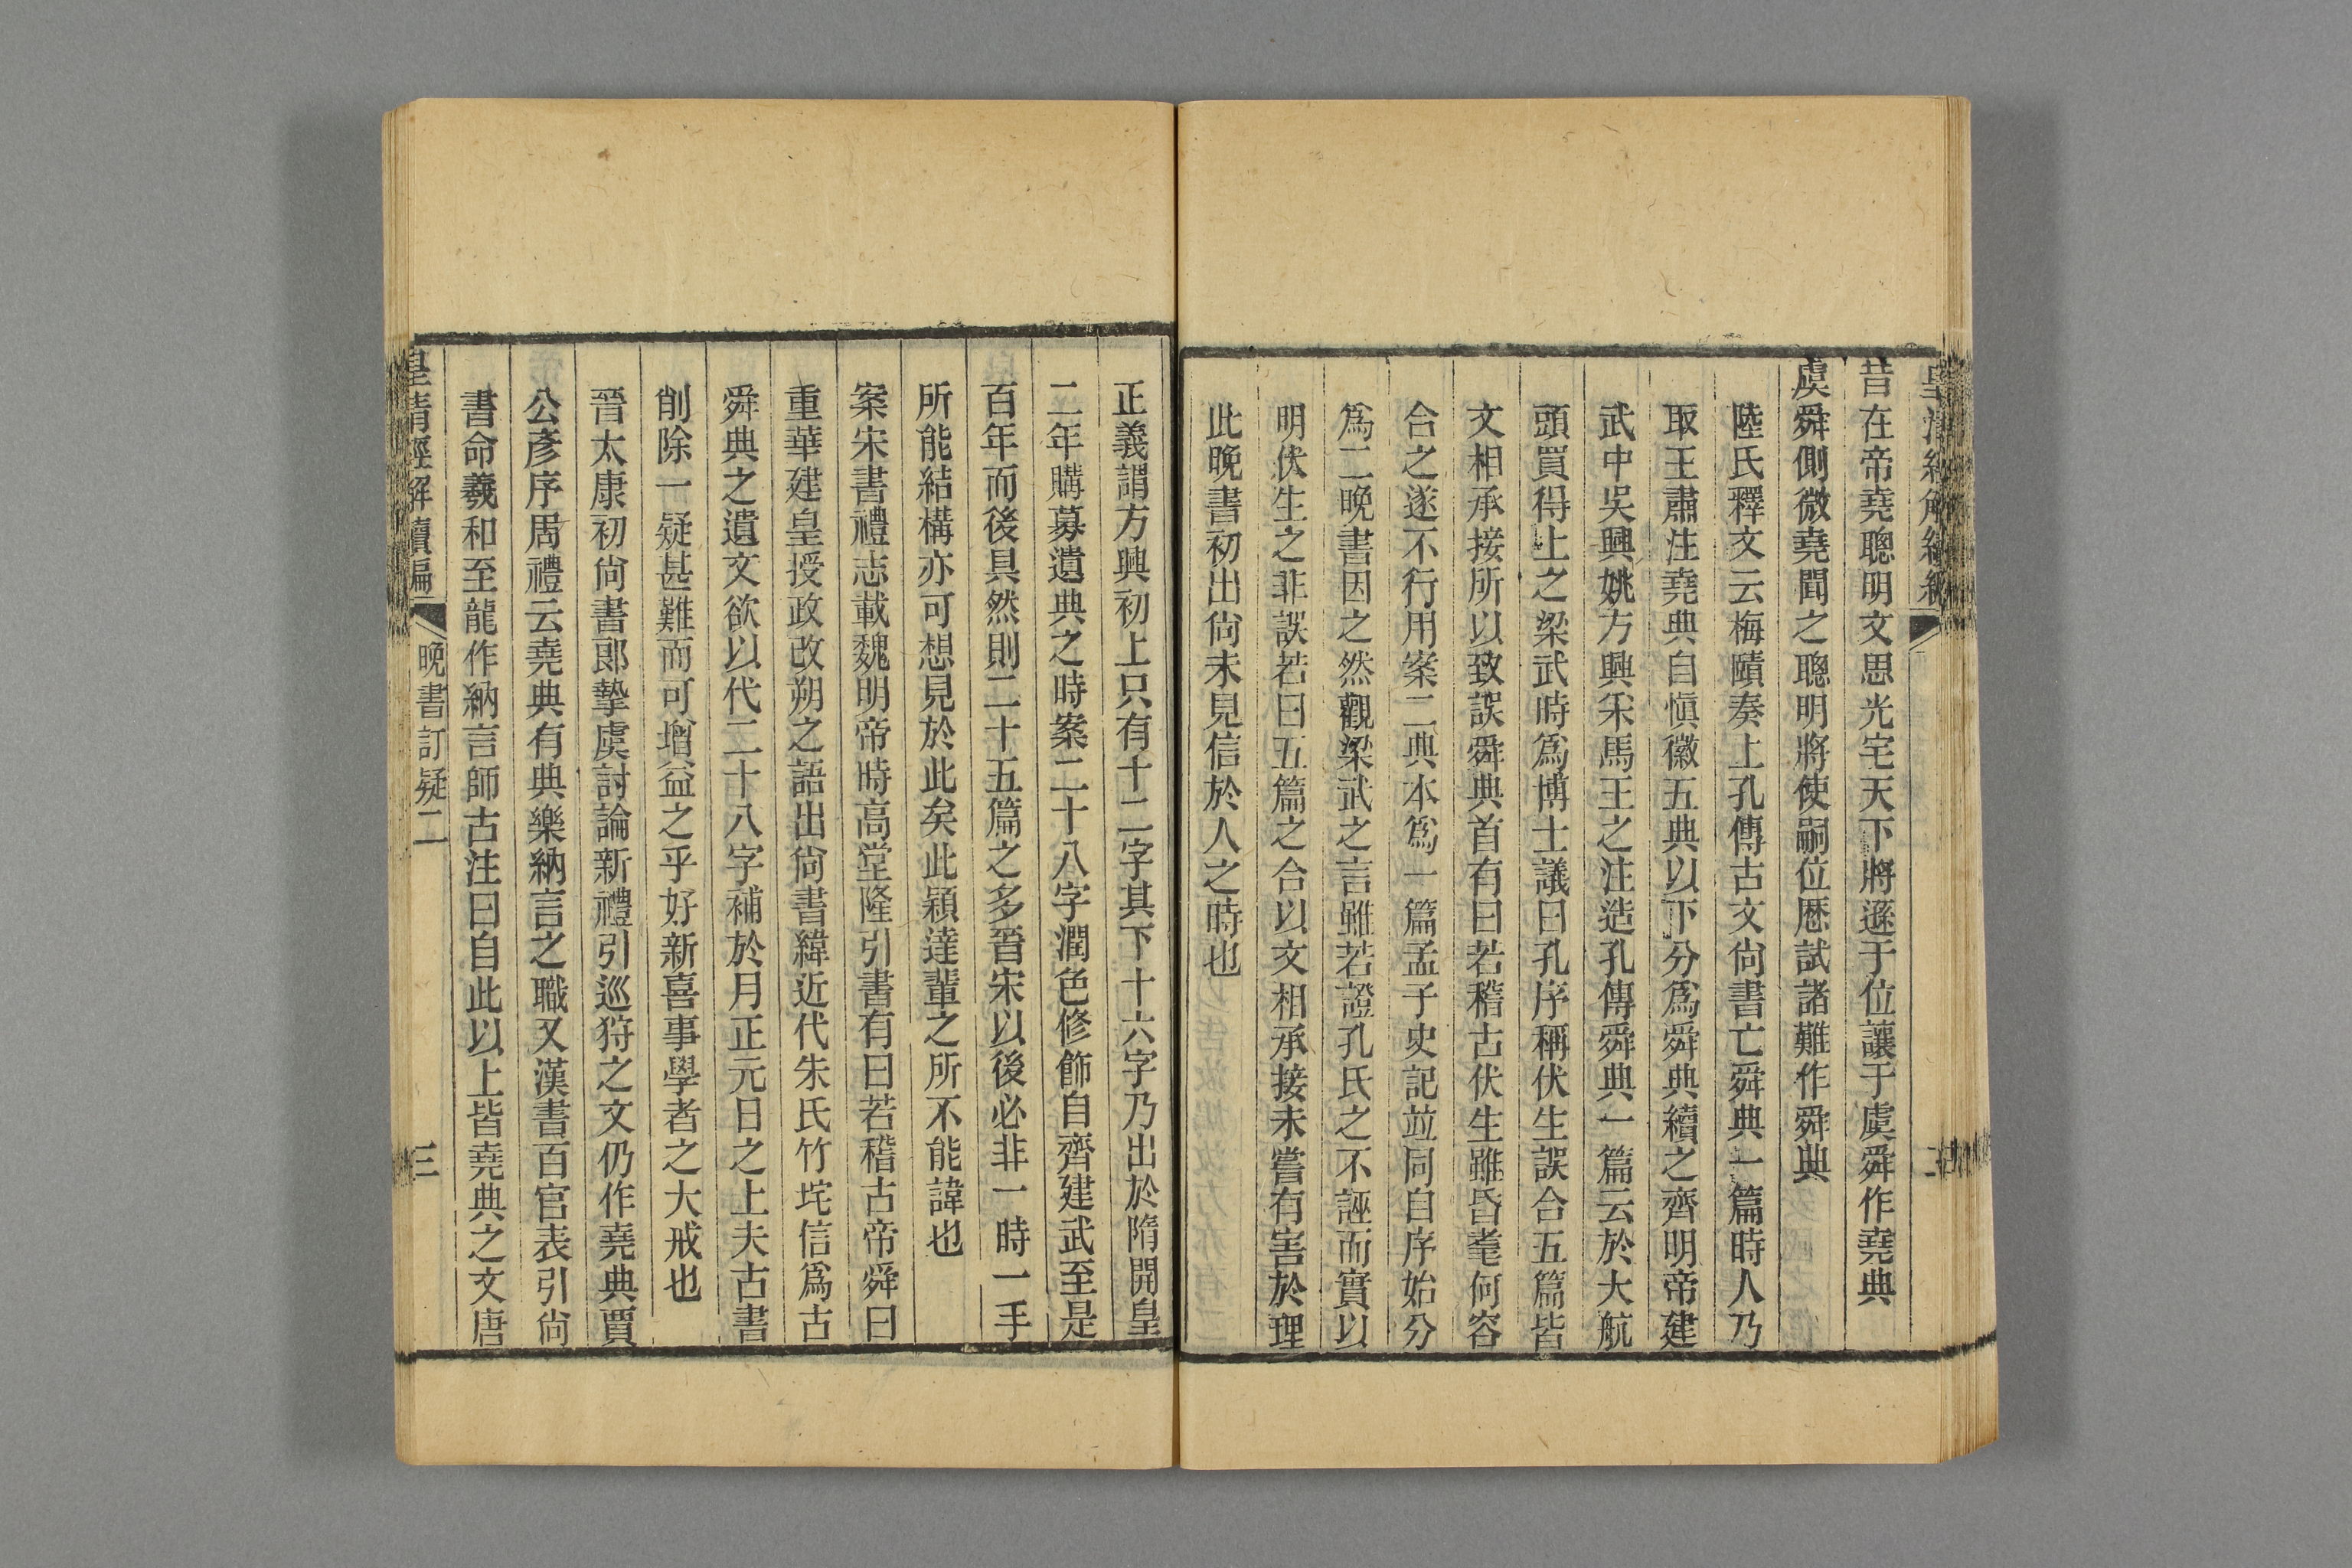 昔在帝堯聰明文思光宅天下將遜于位讓于虞舜作堯典
虞舜側微堯聞之聰明將使嗣位歷試諸難作舜典
陸氏釋文云梅賾奏上孔傳古文尙書亡舜典一篇時人乃
取王肅注堯典自愼徽五典以下分爲舜典續之齊明帝建
武中吳興姚方興采馬王之注造孔傳舜典一篇云於大航
頭買得上之梁武時爲博士議曰孔序稱伏生誤合五篇皆
文相承接所以致誤舜典首有曰若稽古伏生雖昏耄何容
合之遂不行用案二典本爲一篇孟子史記並同自序始分
爲二晩書因之然觀梁武之言雖若證孔氏之不誣而實以
明伏生之非誤若曰五篇之合以文相承接未嘗有害於理
此晩書初出尙未見信於人之時也
正義謂方興初上只有十二字其下十六字乃出於隋開皇
二年購募遺典之時案二十八字潤色修飾自齊建武至是
百年而後具然則二十五篇之多晉宋以後必非一時一手
所能結構亦可想見於此矣此穎達輩之所不能諱也
案宋書禮志載魏明帝時高堂隆引書有曰若稽古帝舜曰
重華建皇授政改朔之語出尙書緯近代朱氏竹垞信爲古
舜典之遺文欲以代二十八字補於月正元日之上夫古書
削除一疑甚難而可增益之乎好新喜事學者之大戒也
晉太康初尙書郞摯虞討論新禮引巡狩之文仍作堯典賈
公彥序周禮云堯典有典樂納言之職又漢書百官表引尙
書命羲和至龍作納言師古注曰自此以上皆堯典之文唐
皇清經解續編
晩書訂疑二
三